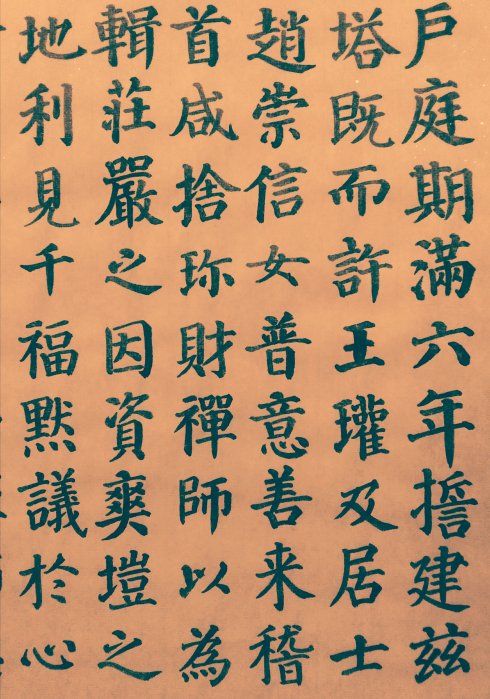 戶庭期滿六年誓建茲
塔既而許王瓘及居士
趙崇信女普意善来稽
首咸捨珎財禪師以為
輯莊嚴之因資爽塏之
地利見千福默議於心